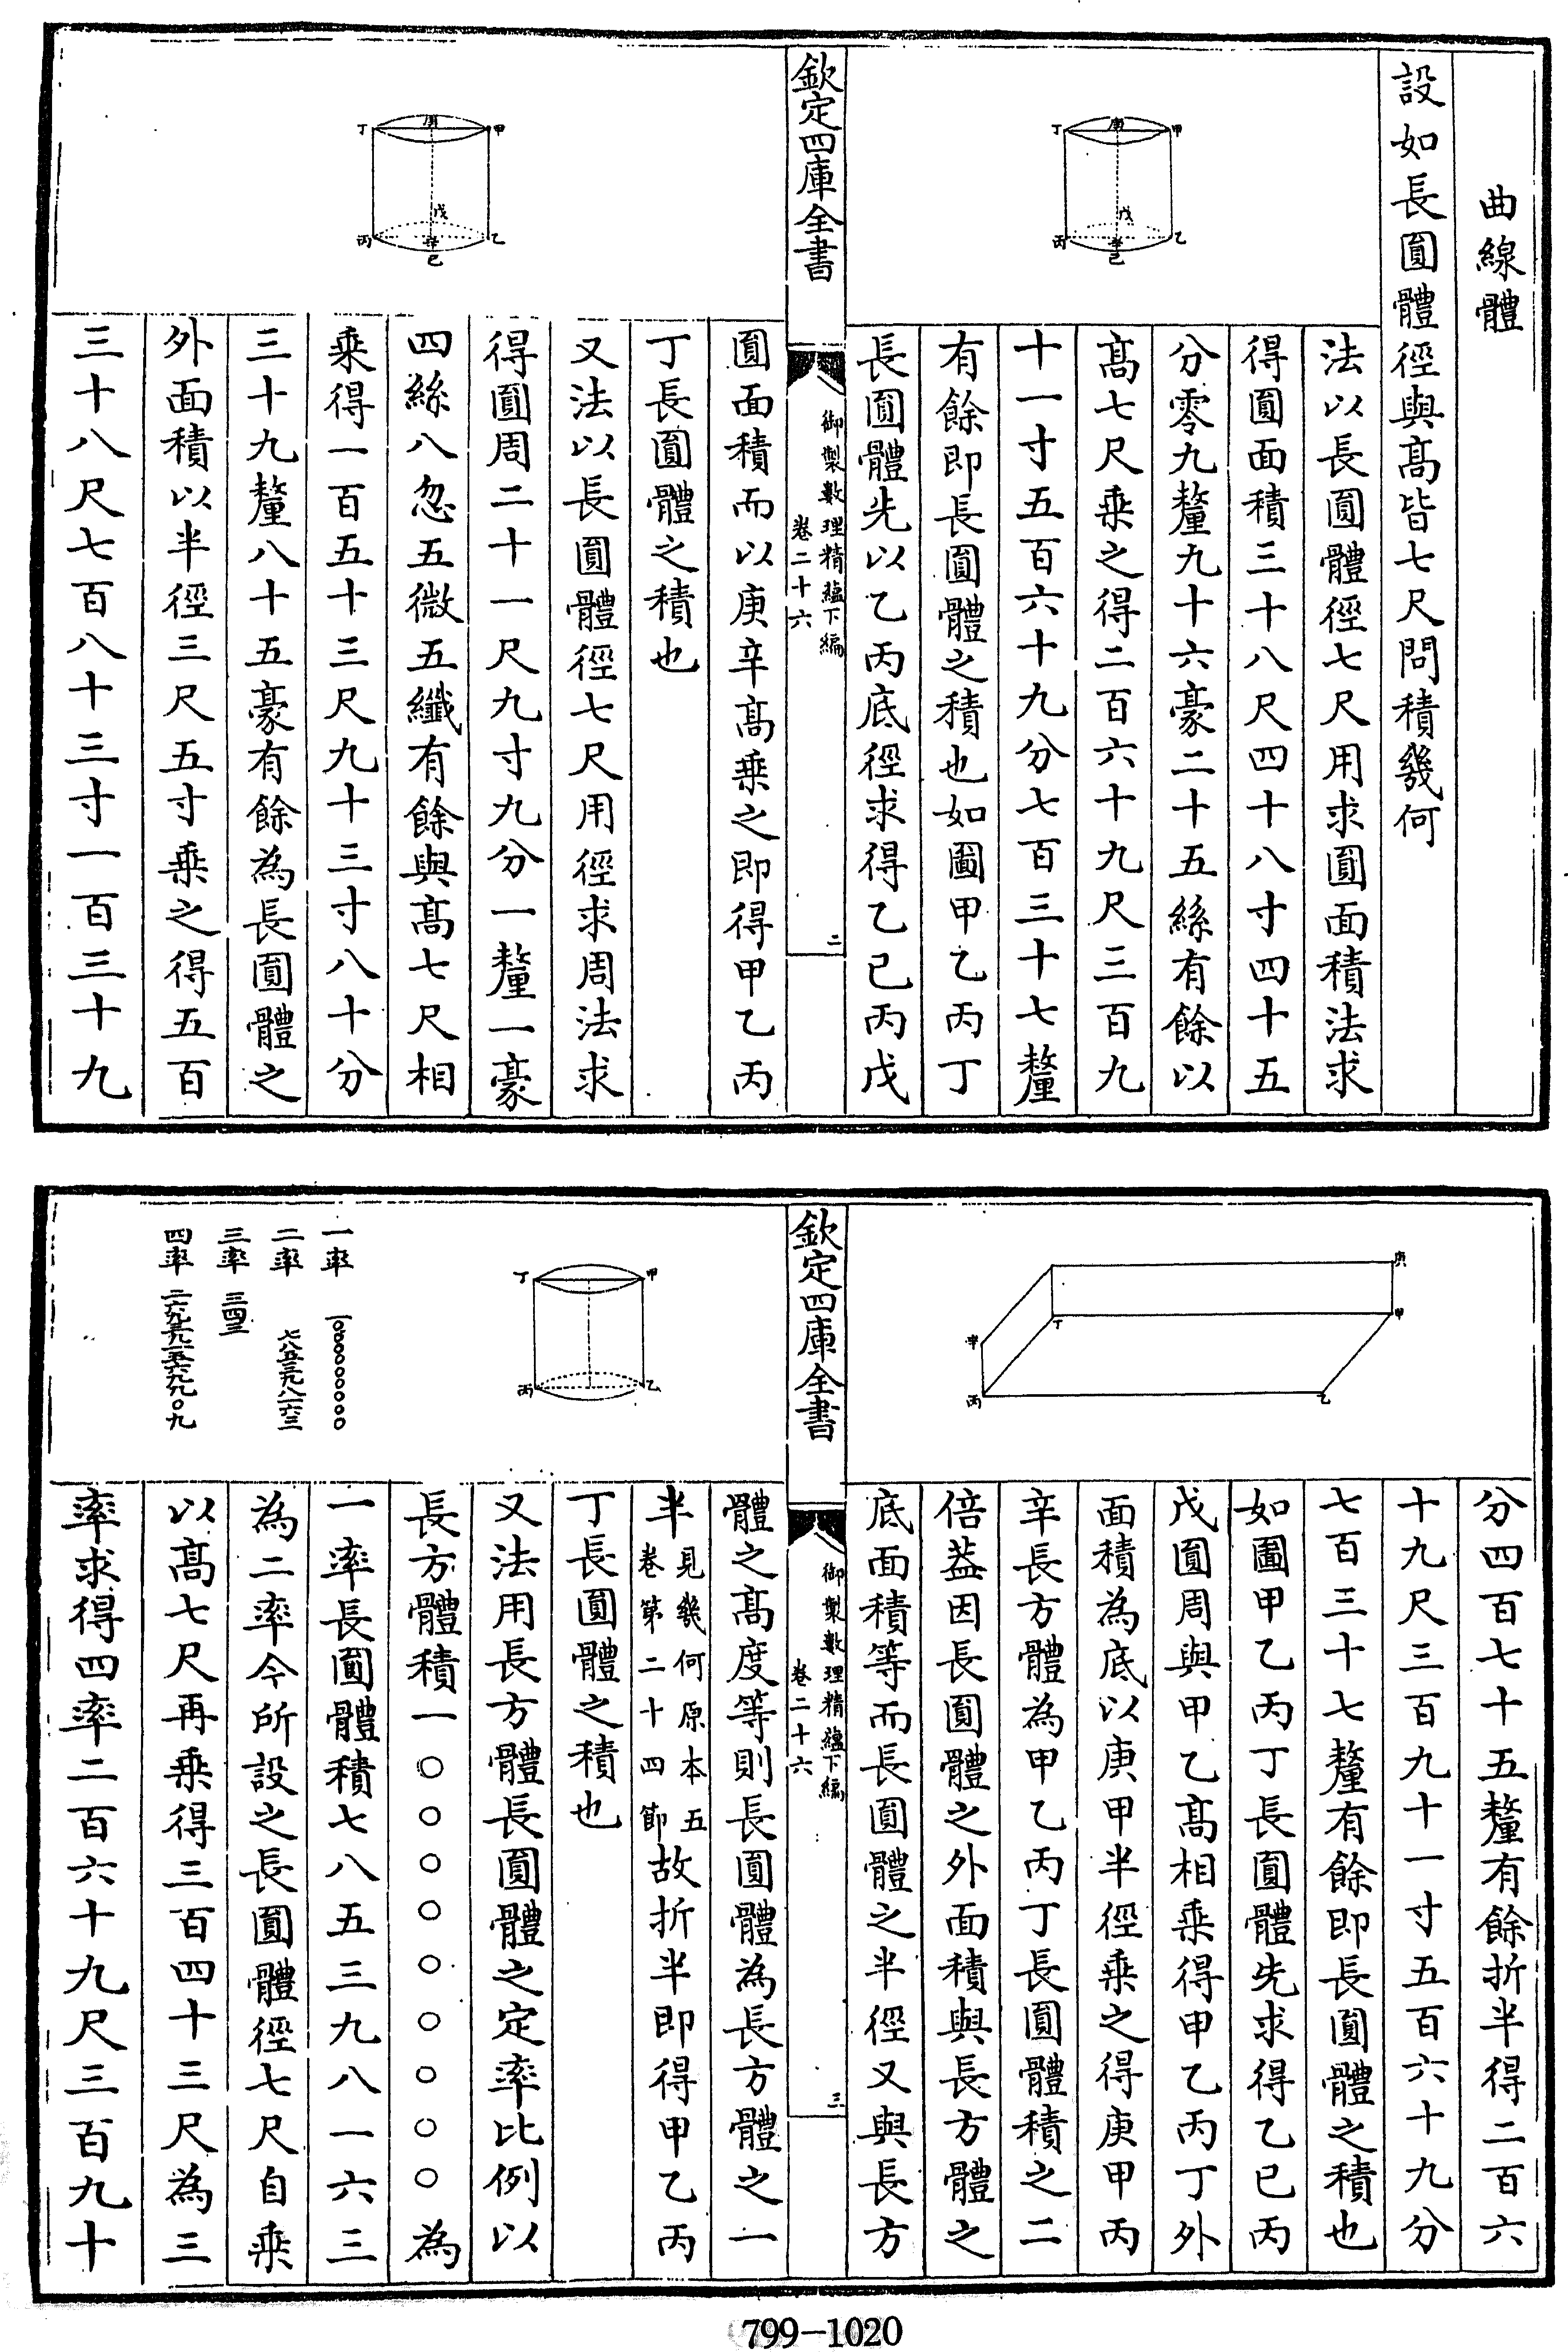 曲線體
設如長圓體徑與髙皆七尺問積幾何
丁 庚 甲
戊
丙 辛 乙
己
法以長圓體徑七尺用求圓面積法求
得圓面積三十八尺四十八寸四十五
分零九釐九十六豪二十五絲有餘以
髙七尺乗之得二百六十九尺三百九
十一寸五百六十九分七百三十七釐
有餘即長圓體之積也如圖甲乙丙丁
長圓體先以乙丙底徑求得乙己丙戊
欽定四庫全書
御製數理精蘊下編
卷二十六
二
丁 庚 甲
戊
丙 辛 乙
己
圓面積而以庚辛髙乗之即得甲乙丙
丁長圓體之積也
又法以長圓體徑七尺用徑求周法求
得圓周二十一尺九寸九分一釐一豪
四絲八忽五微五纎有餘與髙七尺相
乗得一百五十三尺九十三寸八十分
三十九釐八十五豪有餘為長圓體之
外面積以半徑三尺五寸乗之得五百
三十八尺七百八十三寸一百三十九
庚
丁 甲
辛
丙 乙
分四百七十五釐有餘折半得二百六
十九尺三百九十一寸五百六十九分
七百三十七釐有餘即長圓體之積也
如圖甲乙丙丁長圓體先求得乙己丙
戊圓周與甲乙髙相乗得甲乙丙丁外
面積為底以庚甲半徑乗之得庚甲丙
辛長方體為甲乙丙丁長圓體積之二
倍葢因長圓體之外面積與長方體之
底面積等而長圓體之半徑又與長方
欽定四庫全書
御製數理精蘊下編
卷二十六
三
丁 甲
丙 乙
一率 一○○○○○○○○○
二率 七八五三九八一六三
三率 三四三
四率 二六九三九一五六九九○九
體之髙度等則長圓體為長方體之一
半見幾何原本五卷第二十四節故折半即得甲乙丙
丁長圓體之積也
又法用長方體長圓體之定率比例以
長方體積一○○○○○○○○○為
一率長圓體積七八五三九八一六三
為二率今所設之長圓體徑七尺自乗
以髙七尺再乗得三百四十三尺為三
率求得四率二百六十九尺三百九十
799-1020